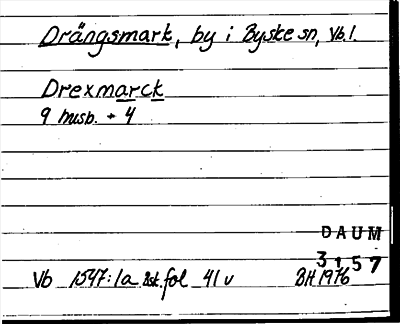 Drängsmark, by i Byske sn, Vb.l.
Drexmarck
9 husb. + 4
DAUM
3157
Vb 1547:1a Bst. fol 41 v BH 1976